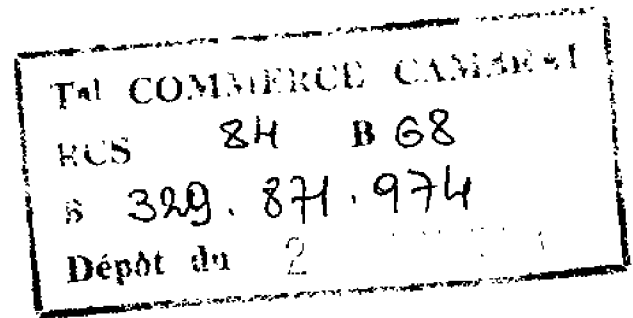 Tal COMMERCE CAMBRAI
RCS 84 B 68
B 329.871.974
Dépôt du 2